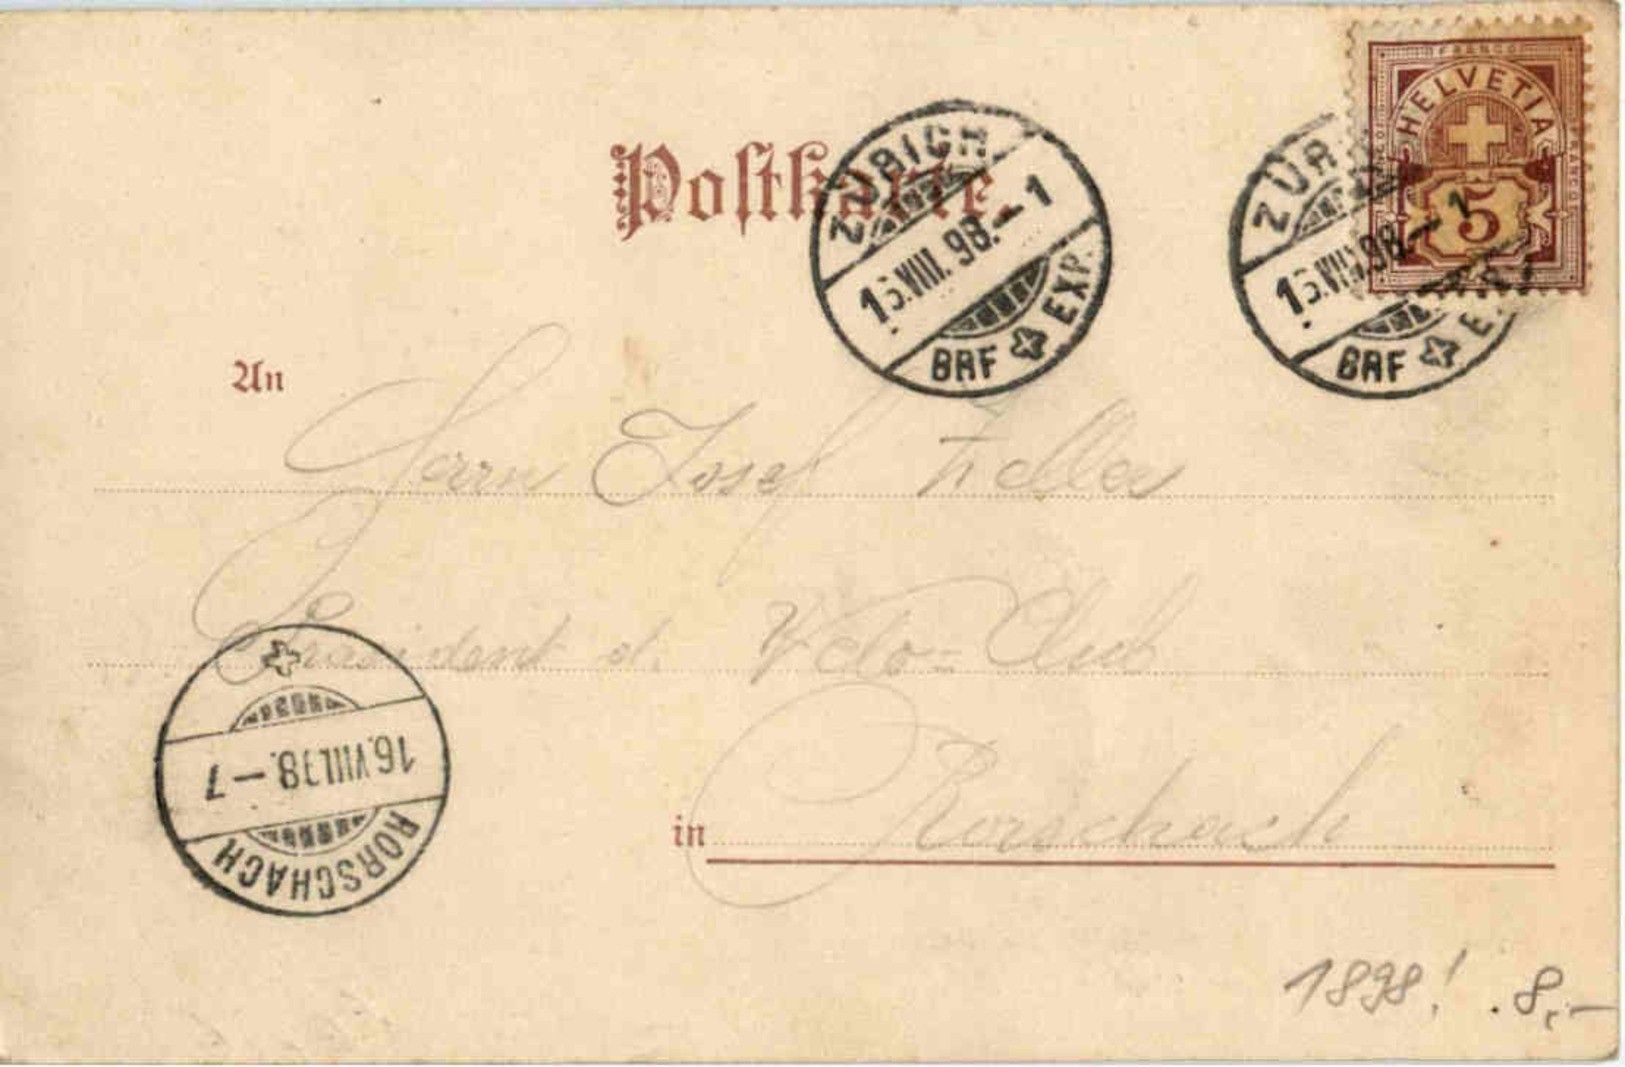 FRANCO
HELVETIA
FRANCO
FRANCO
5
Postkarte.
ZÜRICH
15.VIII.98.-1
BRF EXP.
ZÜR
15.VIII.98.-1
BRF E
An
Herrn Josef Zeller
President d. Velo-Club
in Rorschach
16.VIII.98.-7
RORSCHACH
1898! .8,-